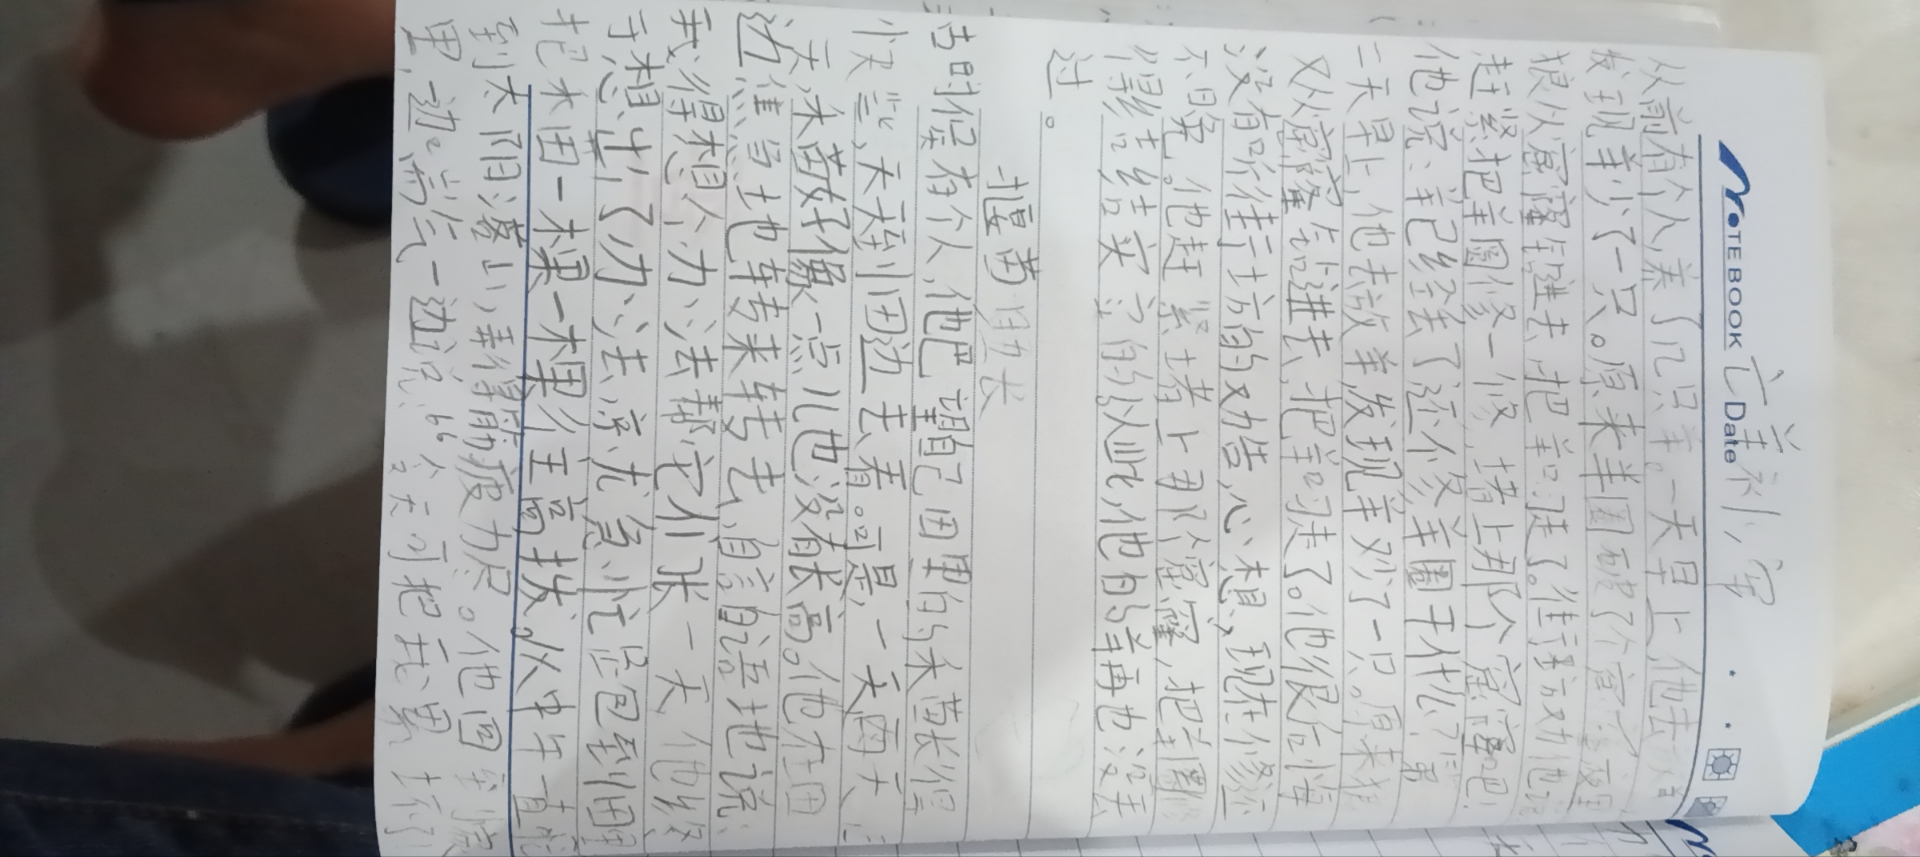 NOTEBOOK
Date
亡羊补牢
从前有个人养了几只羊。一天早上他去放羊
发现羊少了一只。原来羊圈破了个窟窿夜里
狼从窟窿钻进去,把羊叼走了。街坊劝他说
赶紧把羊圈修一修,堵上那个窟窿吧!
他说:羊已经丢了还修羊圈干什么?第
二天早上,他去放羊发现羊又少了一只。原来狼
又从窟窿钻进去,把羊叼走了。他很后悔
没有听街坊的劝告,心想,现在修还
不晚。他赶紧堵上那个窟窿,把羊圈修
得结结实实的从此,他的羊再也没丢
过。
揠苗助长
古时候有个人,他巴望自己田里的禾苗长得
快些,天天到田边去看。可是,一天两天三
天,禾苗好像一点儿也没有长高。他在田
边焦急地转来转去,自言自语地说:
我得想个办法帮它们长 一天 他终
于想出了办法,急忙跑到田里
把禾苗一棵一棵往高拔。从中午一直忙
到太阳落山,弄得筋疲力尽。他回到家
里,一边喘气一边说:“今天可把我累坏了